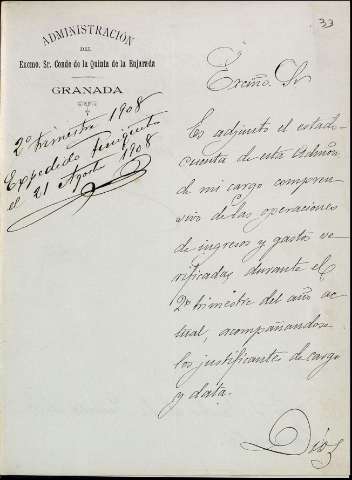 33
ADMINISTRACIÓN
DEL
Excmo. Sr. Conde de la Quinta de la Enjarada
GRANADA
2º trimestre 1908
Expedido finiquito
el 21 Agosto 1908
Excmo. Sr
Es adjunto el estado
cuenta de esta Admón
de mi cargo compren-
sivo de las operaciones
de ingresos y gastos ve-
rificadas durante el
2º trimestre del año ac-
tual, acompañandose
los justificantes de cargo
y data.
Dios